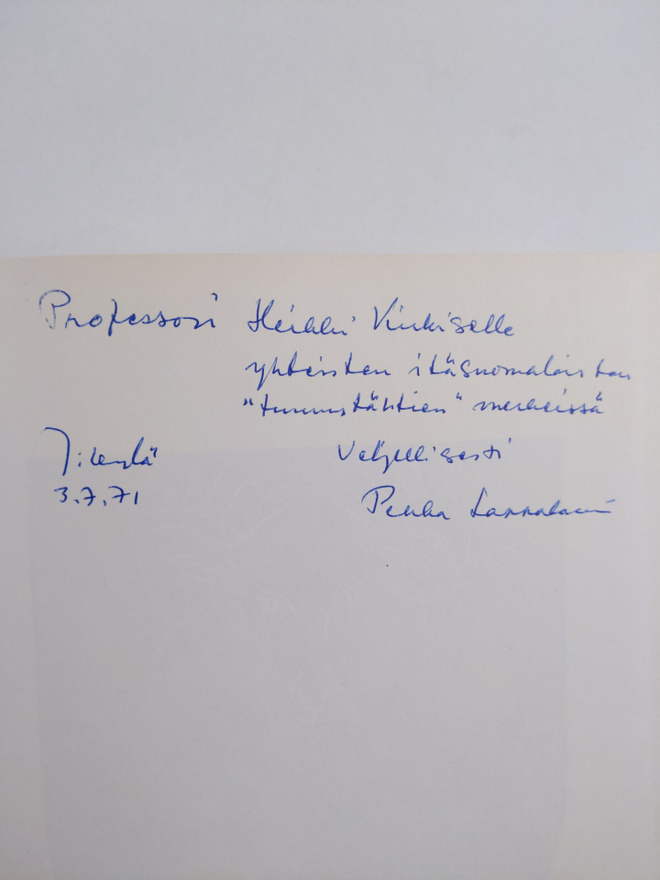 Professori Heikki Kirkiselle
yhteisten itäsuomalaisten
"tunnustähtien" merkeissä
Veljellisesti
3.7.71
Pekka